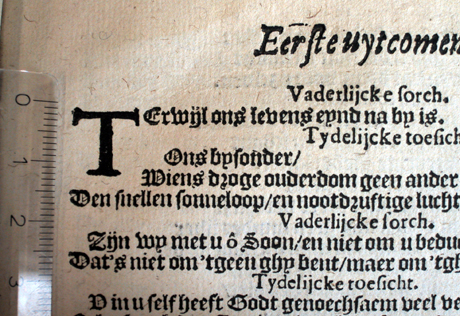 0
1
2
3
Eerste uytcomen
Vaderlijcke sorch.
TErwijl ons levens eynd na by is.
Tydelijcke toesich
Ons bysonder/
Wiens droge ouderdom geen ander
Den snellen sonneloop/en nootdruftige lucht
Vaderlijcke sorch.
Zijn wy met u ô Soon/en niet om u bedu
Dat's niet om 'tgeen ghy bent/maer om 'tgh
Tydelijcke toesicht.
V in u self heeft Godt genoechsaem veel ve